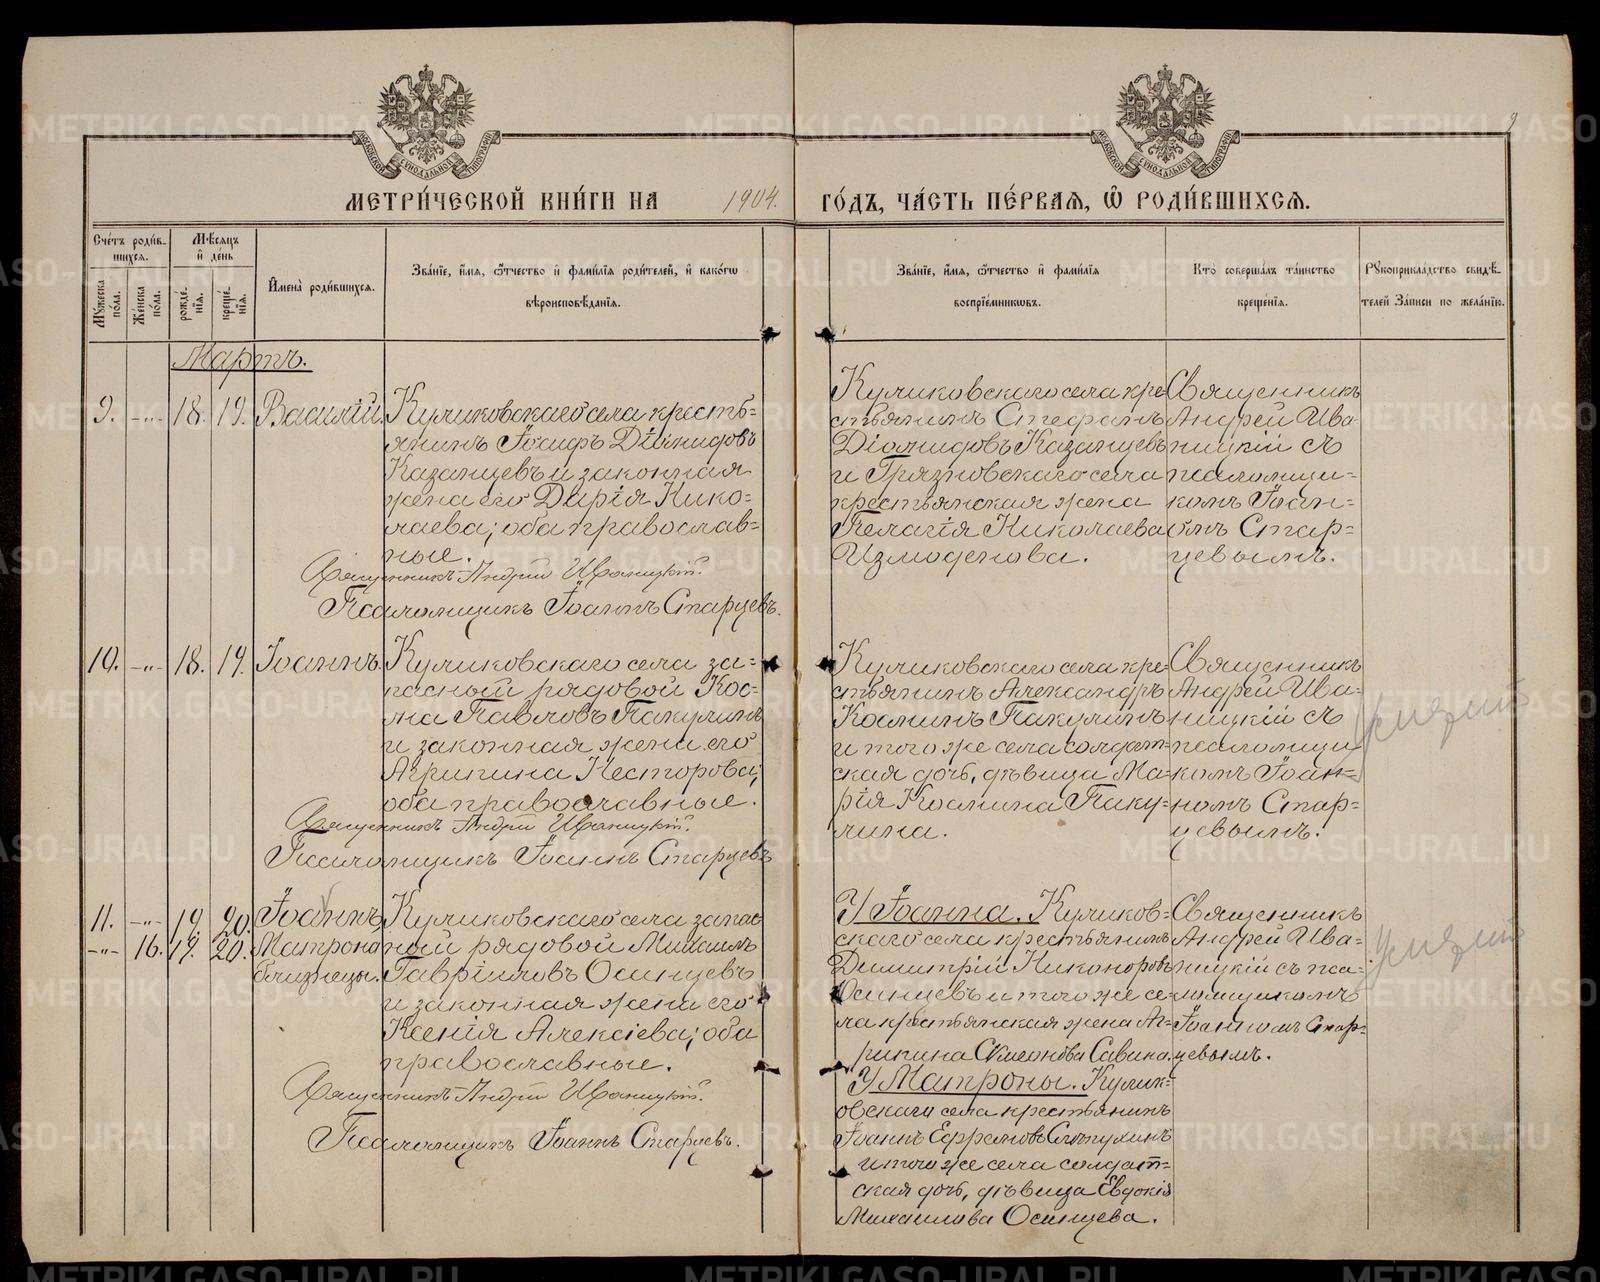 9
МЕТРИ́ЧЕСКОЙ КНИ́ГИ НА 1904. ГО́ДЪ, ЧА́СТЬ ПЕ́РВАЯ, Ѡ РОДИ́ВШИХСЯ.
Сче́тъ роди́вшихся.
Му́жеска по́ла.
Же́нска по́ла.
Мѣ́сяцъ и҆ де́нь
рожде́нїя.
креще́нїя.
И҆мена̀ роди́вшихся.
Зва́нїе, и҆́мя, ѻ҆́тчество и҆ фами́лїя роди́телей, и҆ како́гѡ
вѣроисповѣ́данїя.
Зва́нїе, и҆́мя, ѻ҆́тчество и҆ фами́лїя
воспрїе́мникѡвъ.
Кто̀ соверша́лъ та́инство
креще́нїя.
Рꙋкоприкла́дство свидѣ́-
телей за́писи по жела́нїю.
Мартъ.
9. -„- 18. 19. Василій.
Куликовскаго села кресть=
янинъ Іоасафъ Діомидовъ
Казанцевъ и законная
жена его Дарія Нико=
лаева; оба православ=
ные.
Священникъ Андрей Иваницкій.
Псаломщикъ Іоаннъ Старцевъ.
Куликовскаго села кре-
стьянинъ Стефанъ
Діомидовъ Казанцевъ
и Грязновскаго села
крестьянская жена
Пелагія Николаева
Измоденова.
Священникъ
Андрей Ива-
ницкій съ
псаломщи-
комъ Іоан-
номъ Стар-
цевымъ.
10. -„- 18. 19. Іоаннъ.
Куликовскаго села за=
пасный рядовой Кос=
ма Павловъ Пакулинъ
и законная жена его
Агрипина Несторова;
оба православные.
Священникъ Андрей Иваницкій.
Псаломщикъ Іоаннъ Старцевъ
Куликовскаго села кре-
стьянинъ Александръ
Косминъ Пакулинъ
и того же села солдат=
ская дочь, дѣвица Ма-
рія Космина Паку=
лина.
Священникъ
Андрей Ива-
ницкій съ
псаломщи-
комъ Іоан=
номъ Стар=
цевымъ.
11. -„- 19. 20. Іоаннъ,
-„- 16. 19. 20. Матрона
близнецы.
Куликовскаго села запас
ный рядовой Михаилъ
Гавріиловъ Осинцевъ
и законная жена его
Ксенія Алексіева; оба
православные.
Священникъ Андрей Иваницкій.
Псаломщикъ Іоаннъ Старцевъ.
У Іоанна. Куликов=
скаго села крестьянинъ
Димитрій Никоноровъ
Осинцевъ и того же се-
ла крестьянская жена Аг-
рипина Симеонова Савина.
У Матроны. Кулик-
овскаго села крестьянинъ
Іоаннъ Ефремовъ
и того же села солдат=
ская дочь, дѣвица Евдокія
Михаилова Осинцева.
Священникъ
Андрей Ива-
ницкій съ пса-
ломщикомъ
Іоанномъ Стар=
цевымъ.